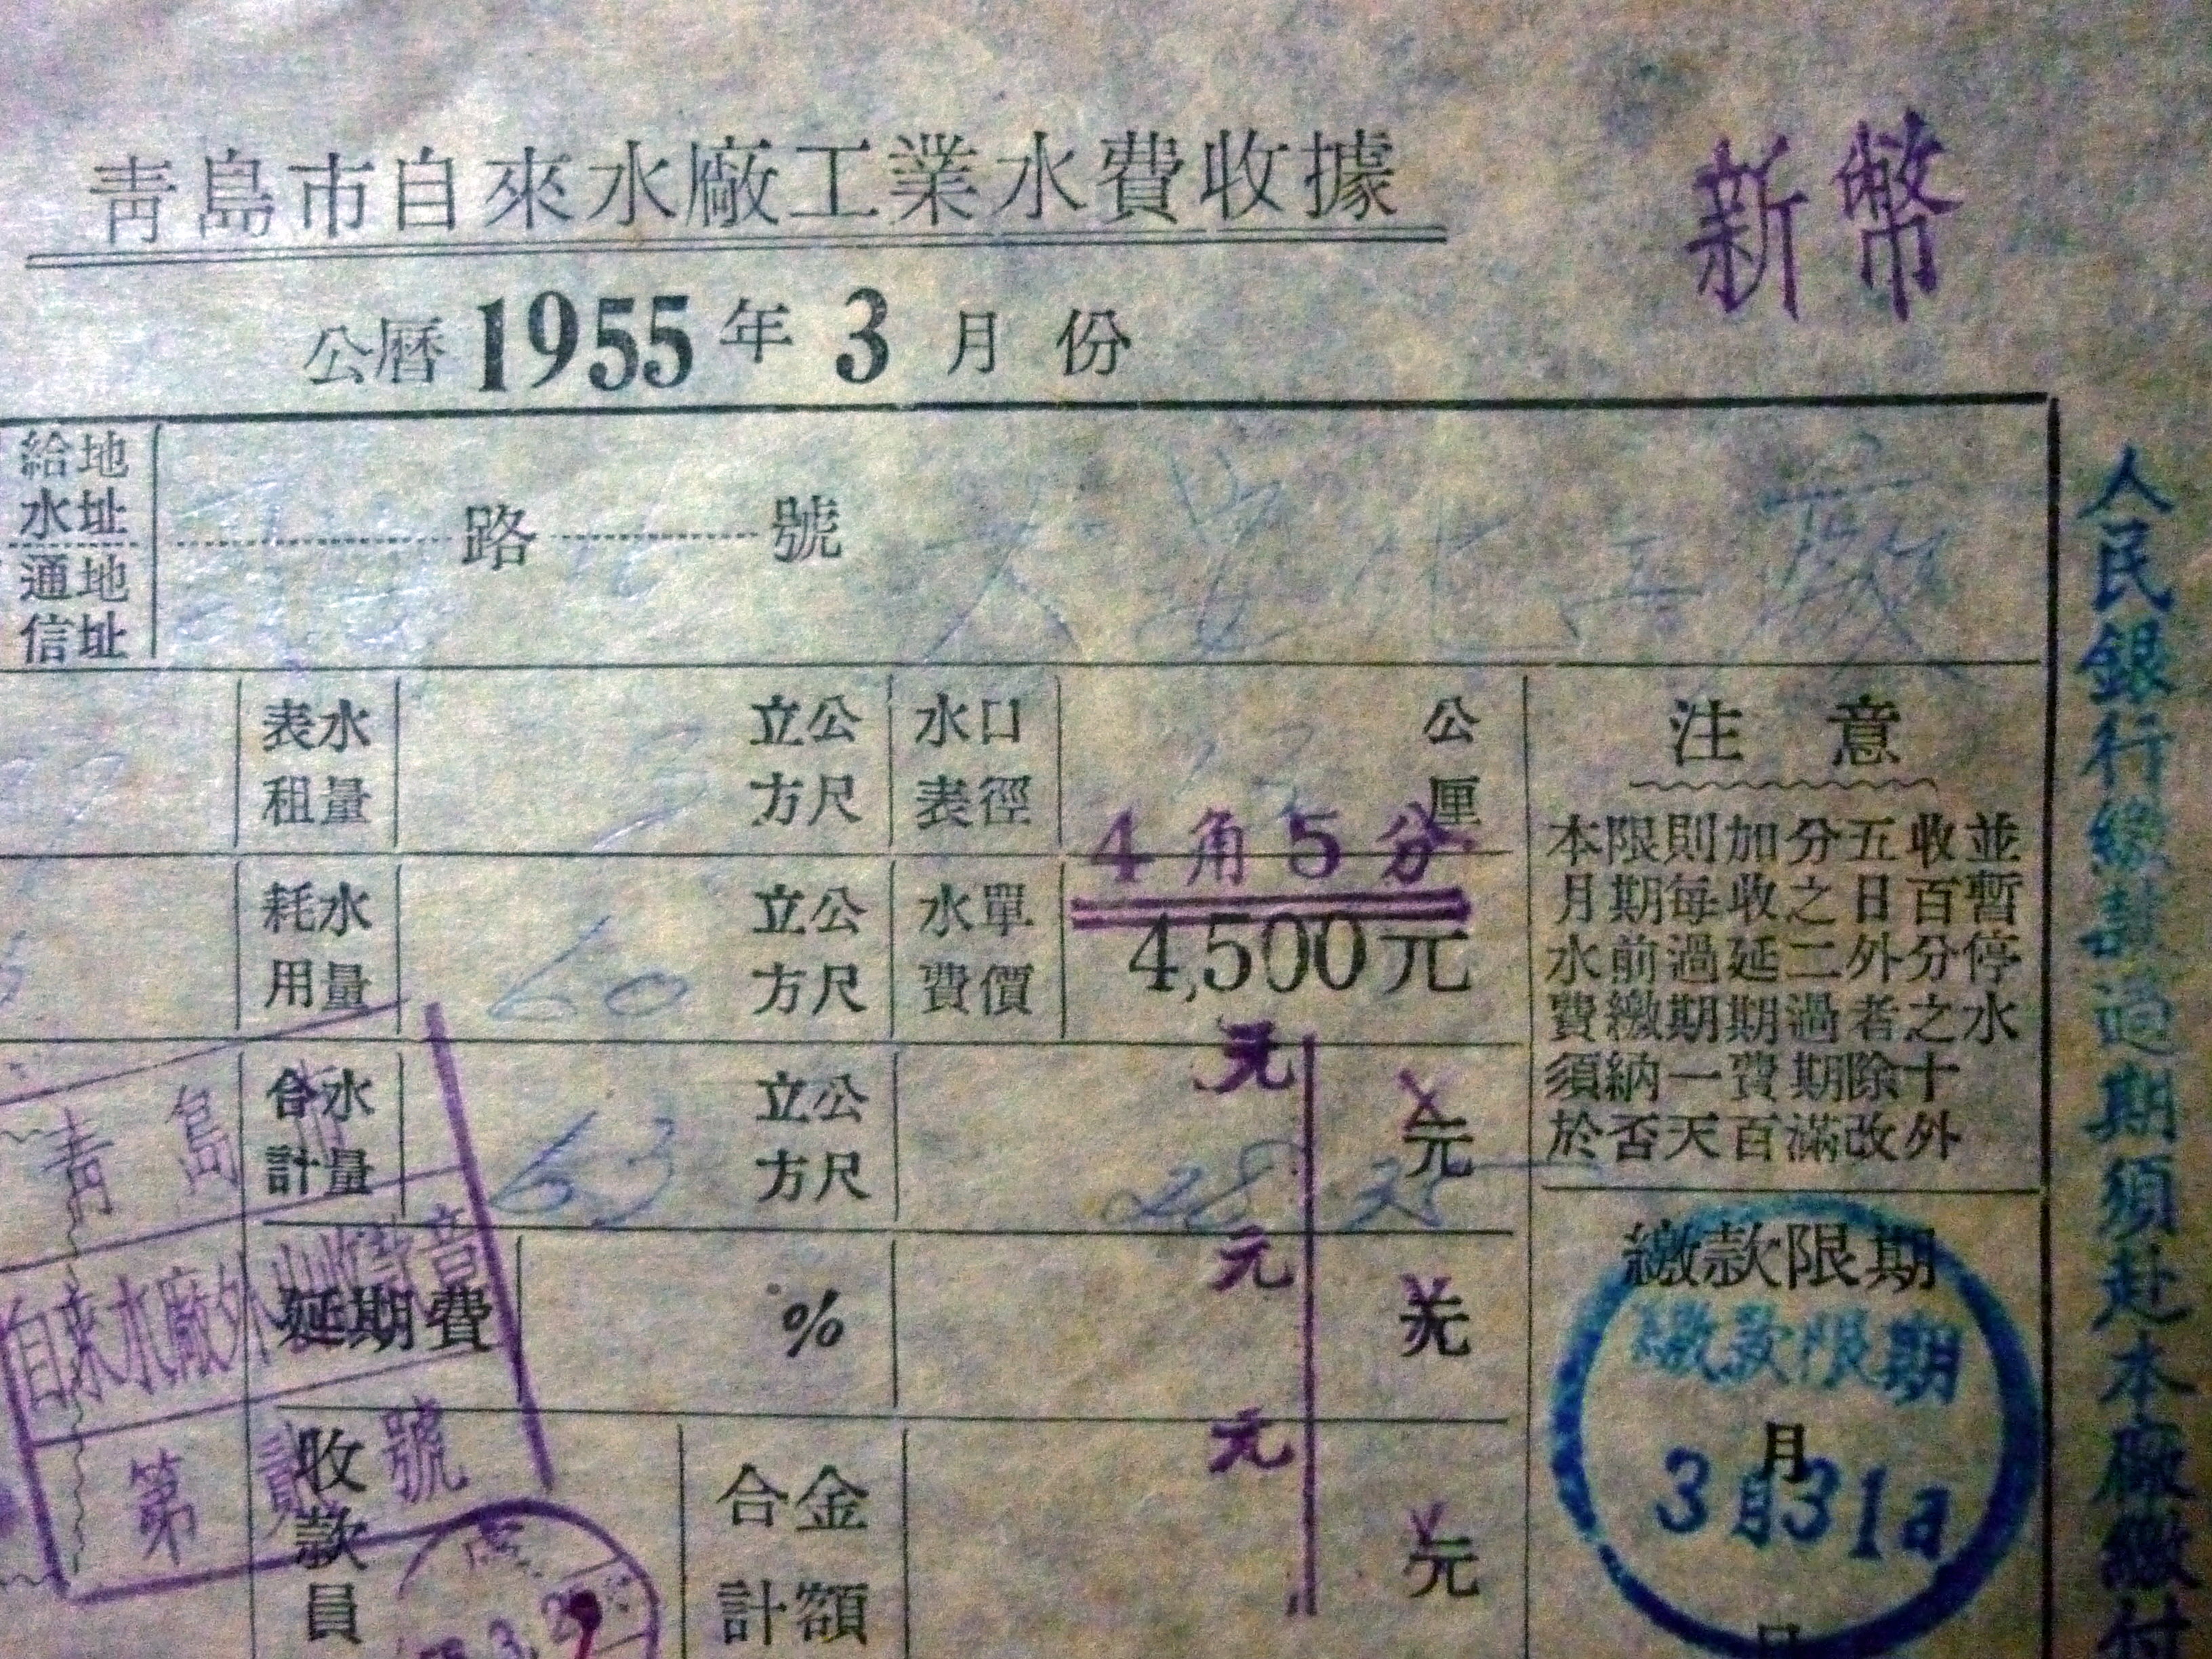 青島市自來水廠工業水費收據
新幣
公曆 1955 年 3 月 份
給水地址
通信地址
路 號
大 化工廠
水表租量
立方公尺
水表口徑
公厘
4角5分
耗用水量
60
立方公尺
水費單價
4,500元
水量合計
63
立方公尺
元
28
元
延期費
%
元
元
收款員
金額合計
元
元
注意
本月水費須於
限期前繳納否
則每過期一天
加收延期費百
分之二過期百
五日者除滿
收百分之十改
並暫停水外
繳款限期
繳款限期
月
3月31日
日
人民銀行繳款過期須赴本廠繳付
青島市
自來水廠外
第貳號